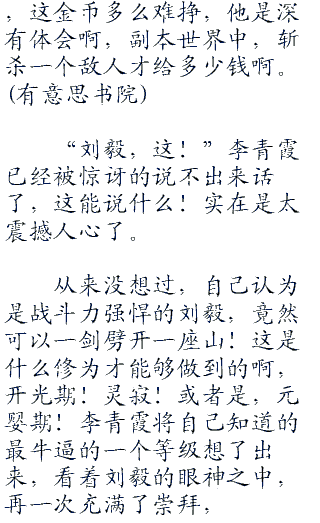 ，这金币多么难挣，他是深
有体会啊，副本世界中，斩
杀一个敌人才给多少钱啊。
(有意思书院)
“刘毅，这！”李青霞
已经被惊讶的说不出来话
了，这能说什么！实在是太
震撼人心了。
从来没想过，自己认为
是战斗力强悍的刘毅，竟然
可以一剑劈开一座山！这是
什么修为才能够做到的啊，
开光期！灵寂！或者是，元
婴期！李青霞将自己知道的
最牛逼的一个等级想了出
来，看着刘毅的眼神之中，
再一次充满了崇拜，